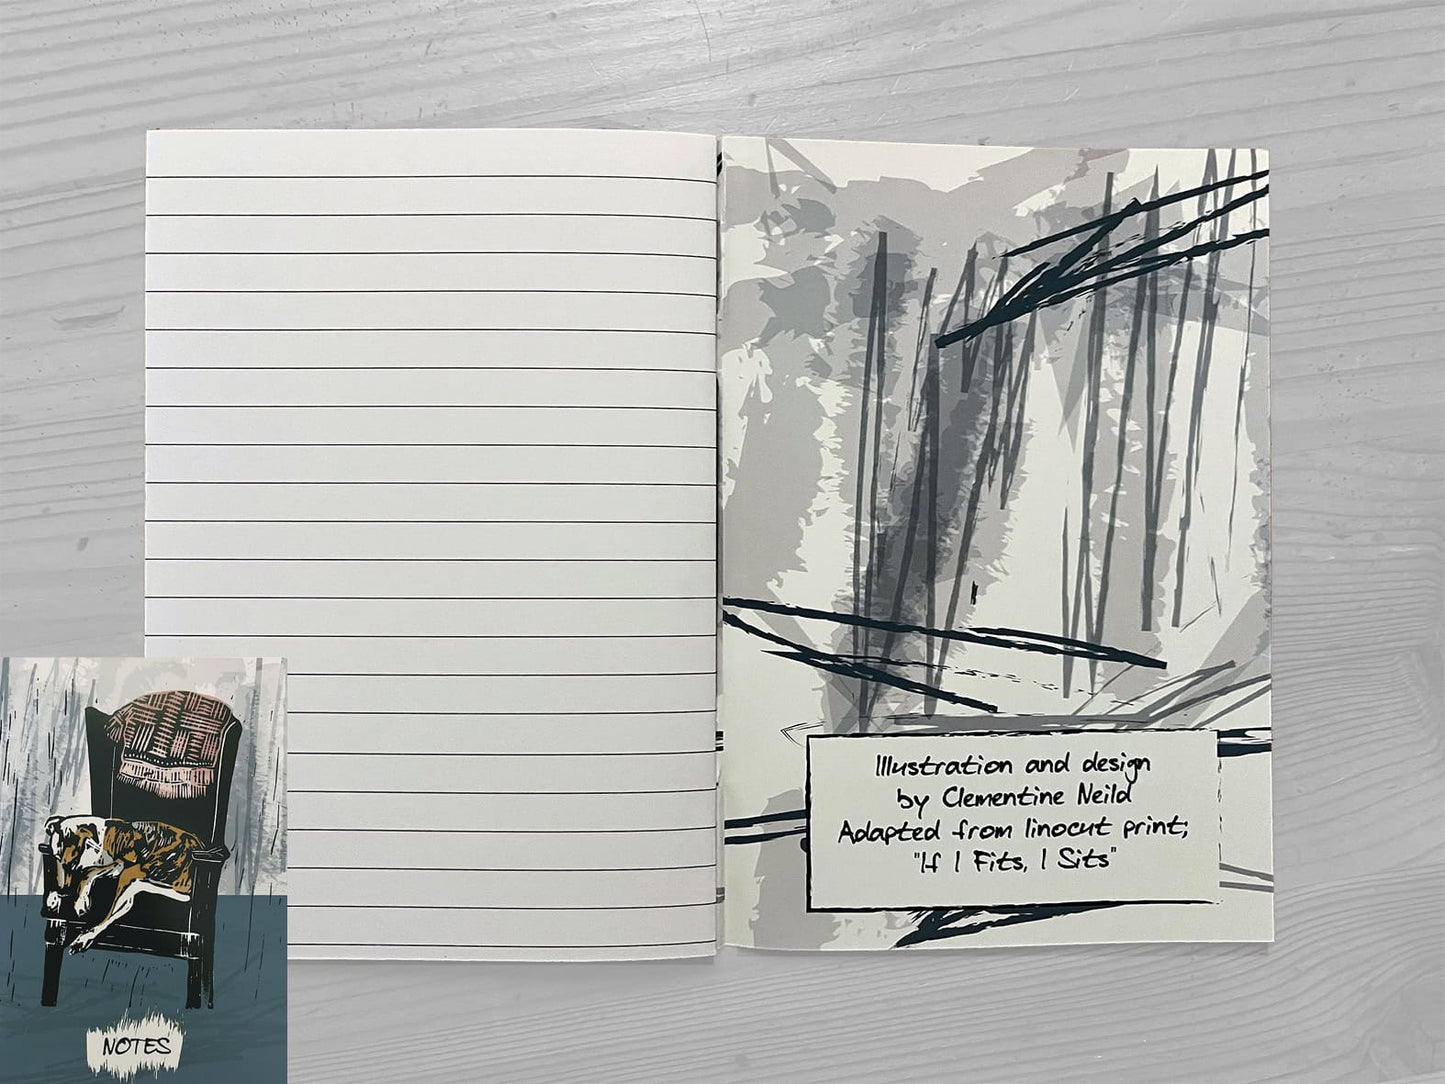 Illustration and design
by Clementine Neild
Adapted from linocut print;
"If I Fits, I Sits"
NOTES